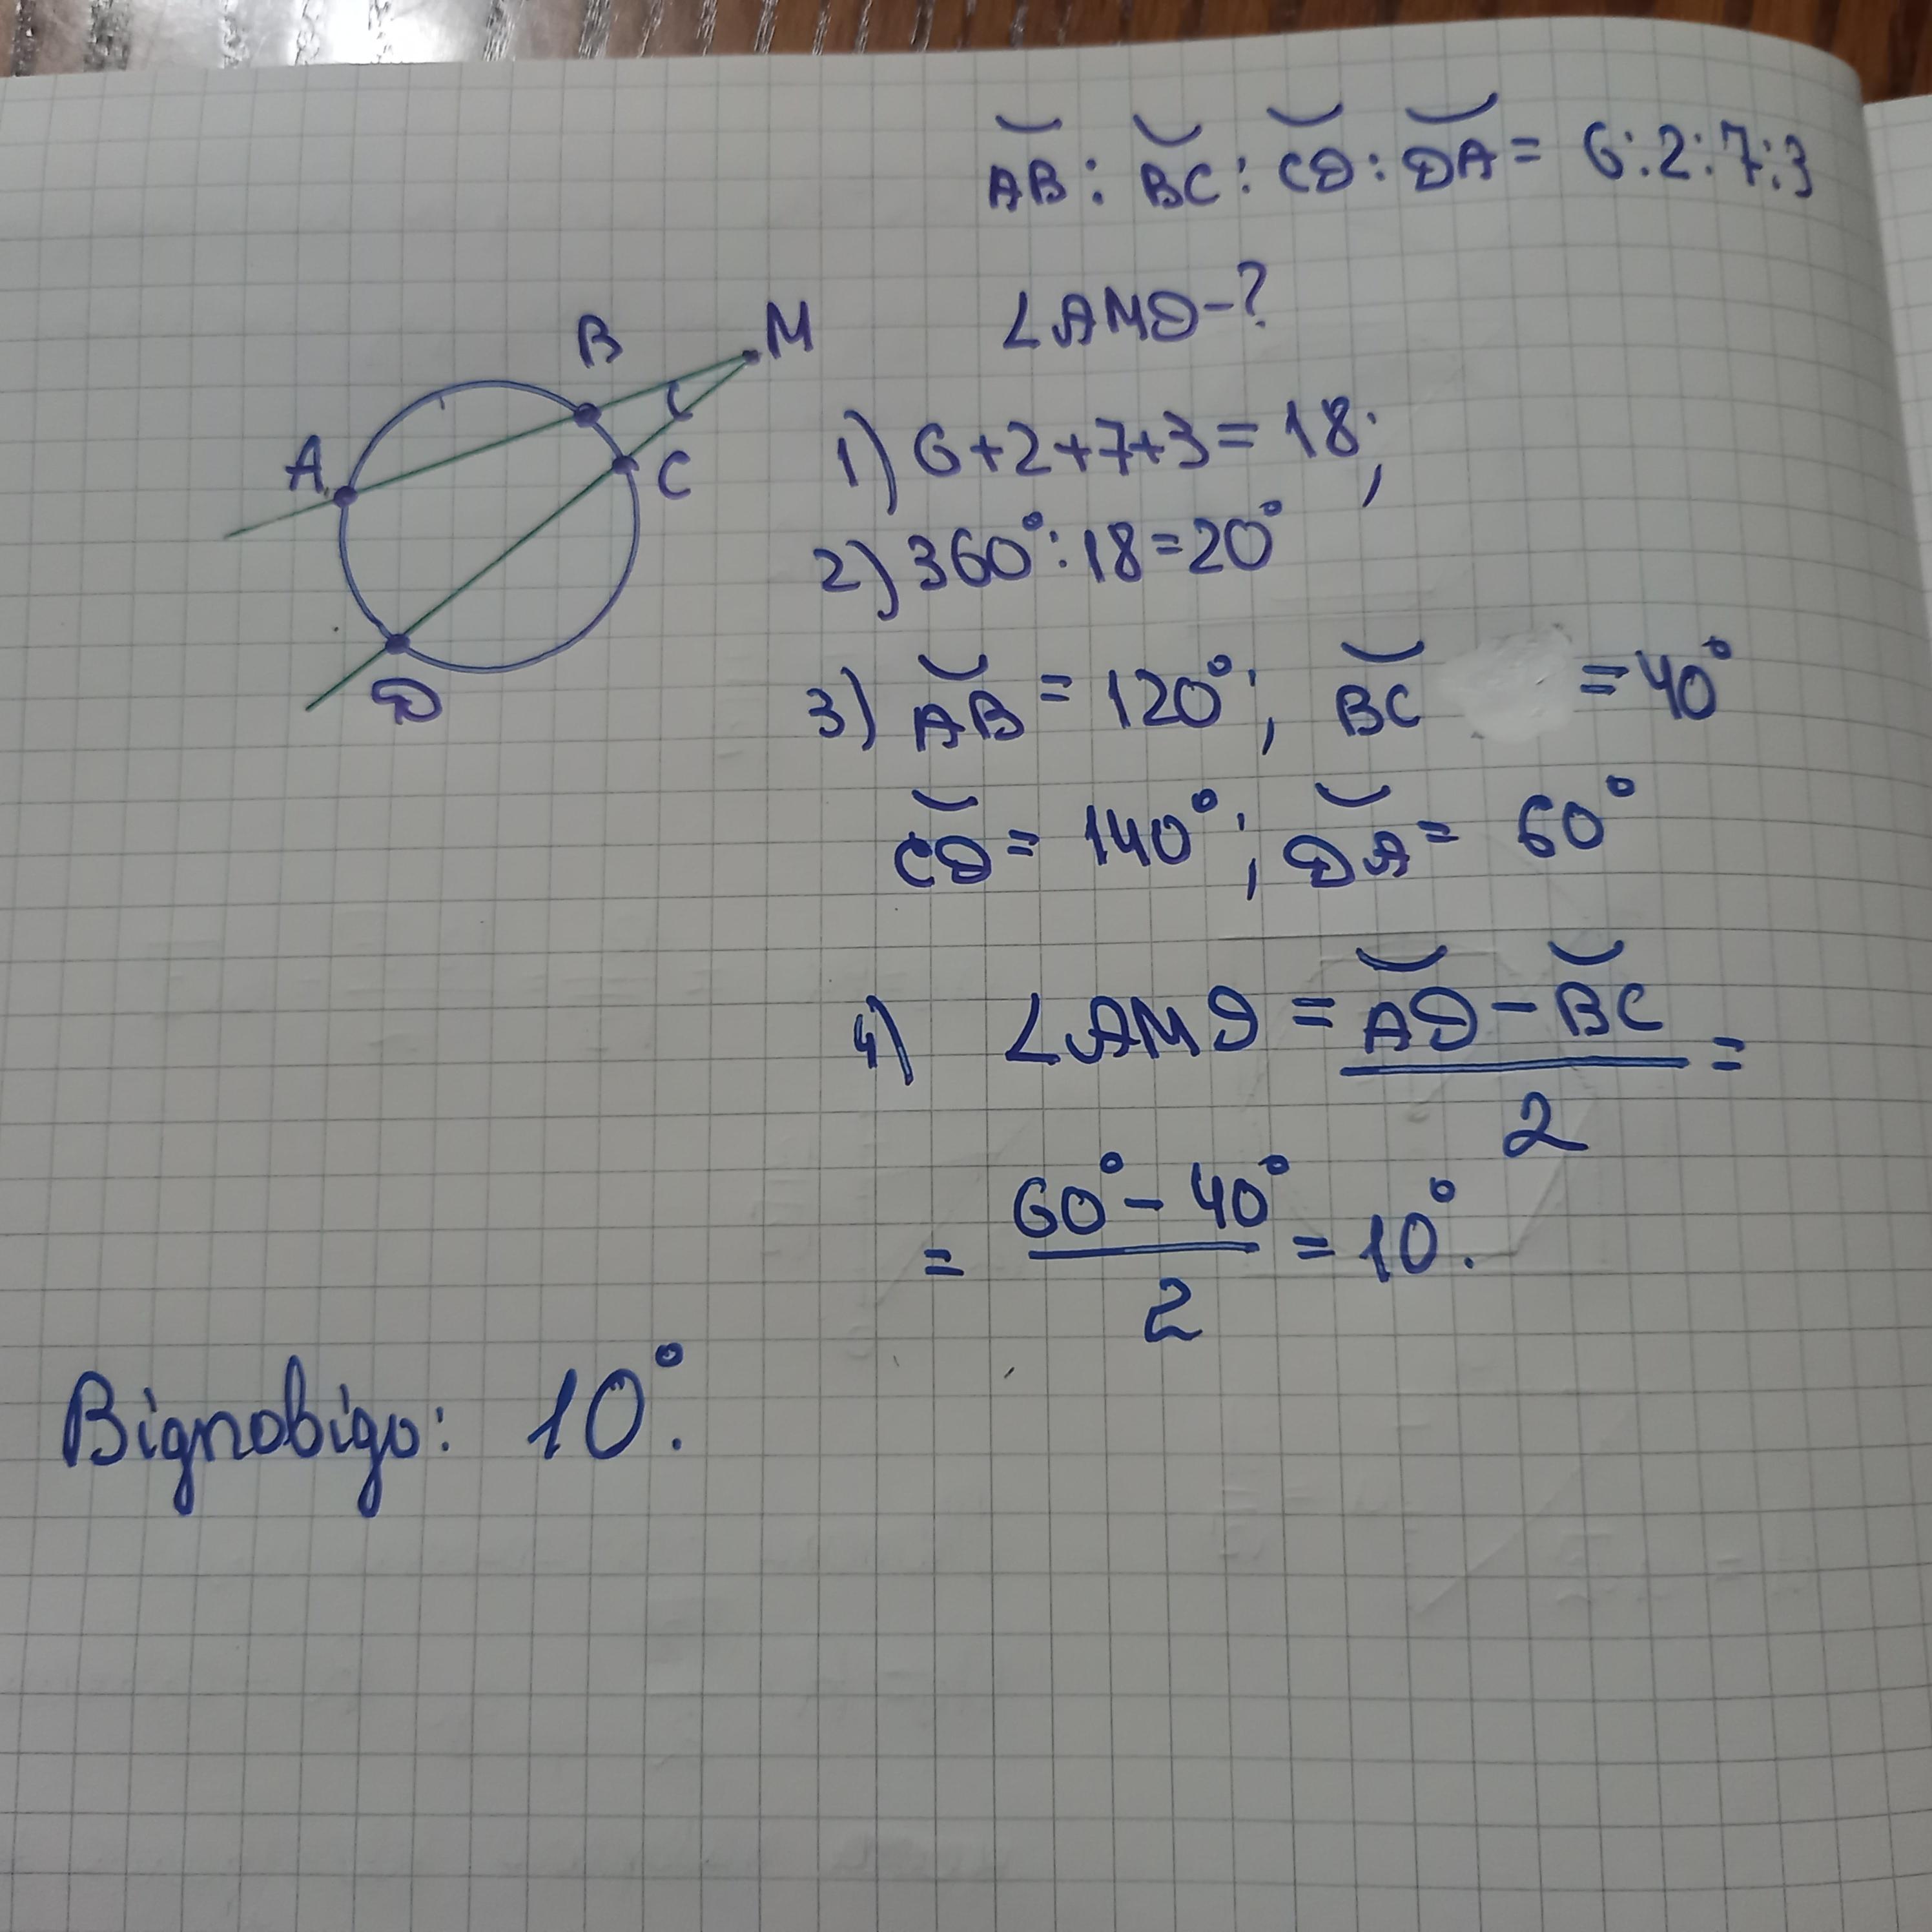 AB : BC : CD : DA = 6:2:7:3
∠AMD-?
B
M
A
C
D
1) 6+2+7+3=18;
2) 360°:18=20°
3) AB = 120°; BC =40°
CD = 140°; DA = 60°
4) ∠AMD = AD - BC / 2 =
= 60° - 40° / 2 = 10°.
Відповідь: 10°.